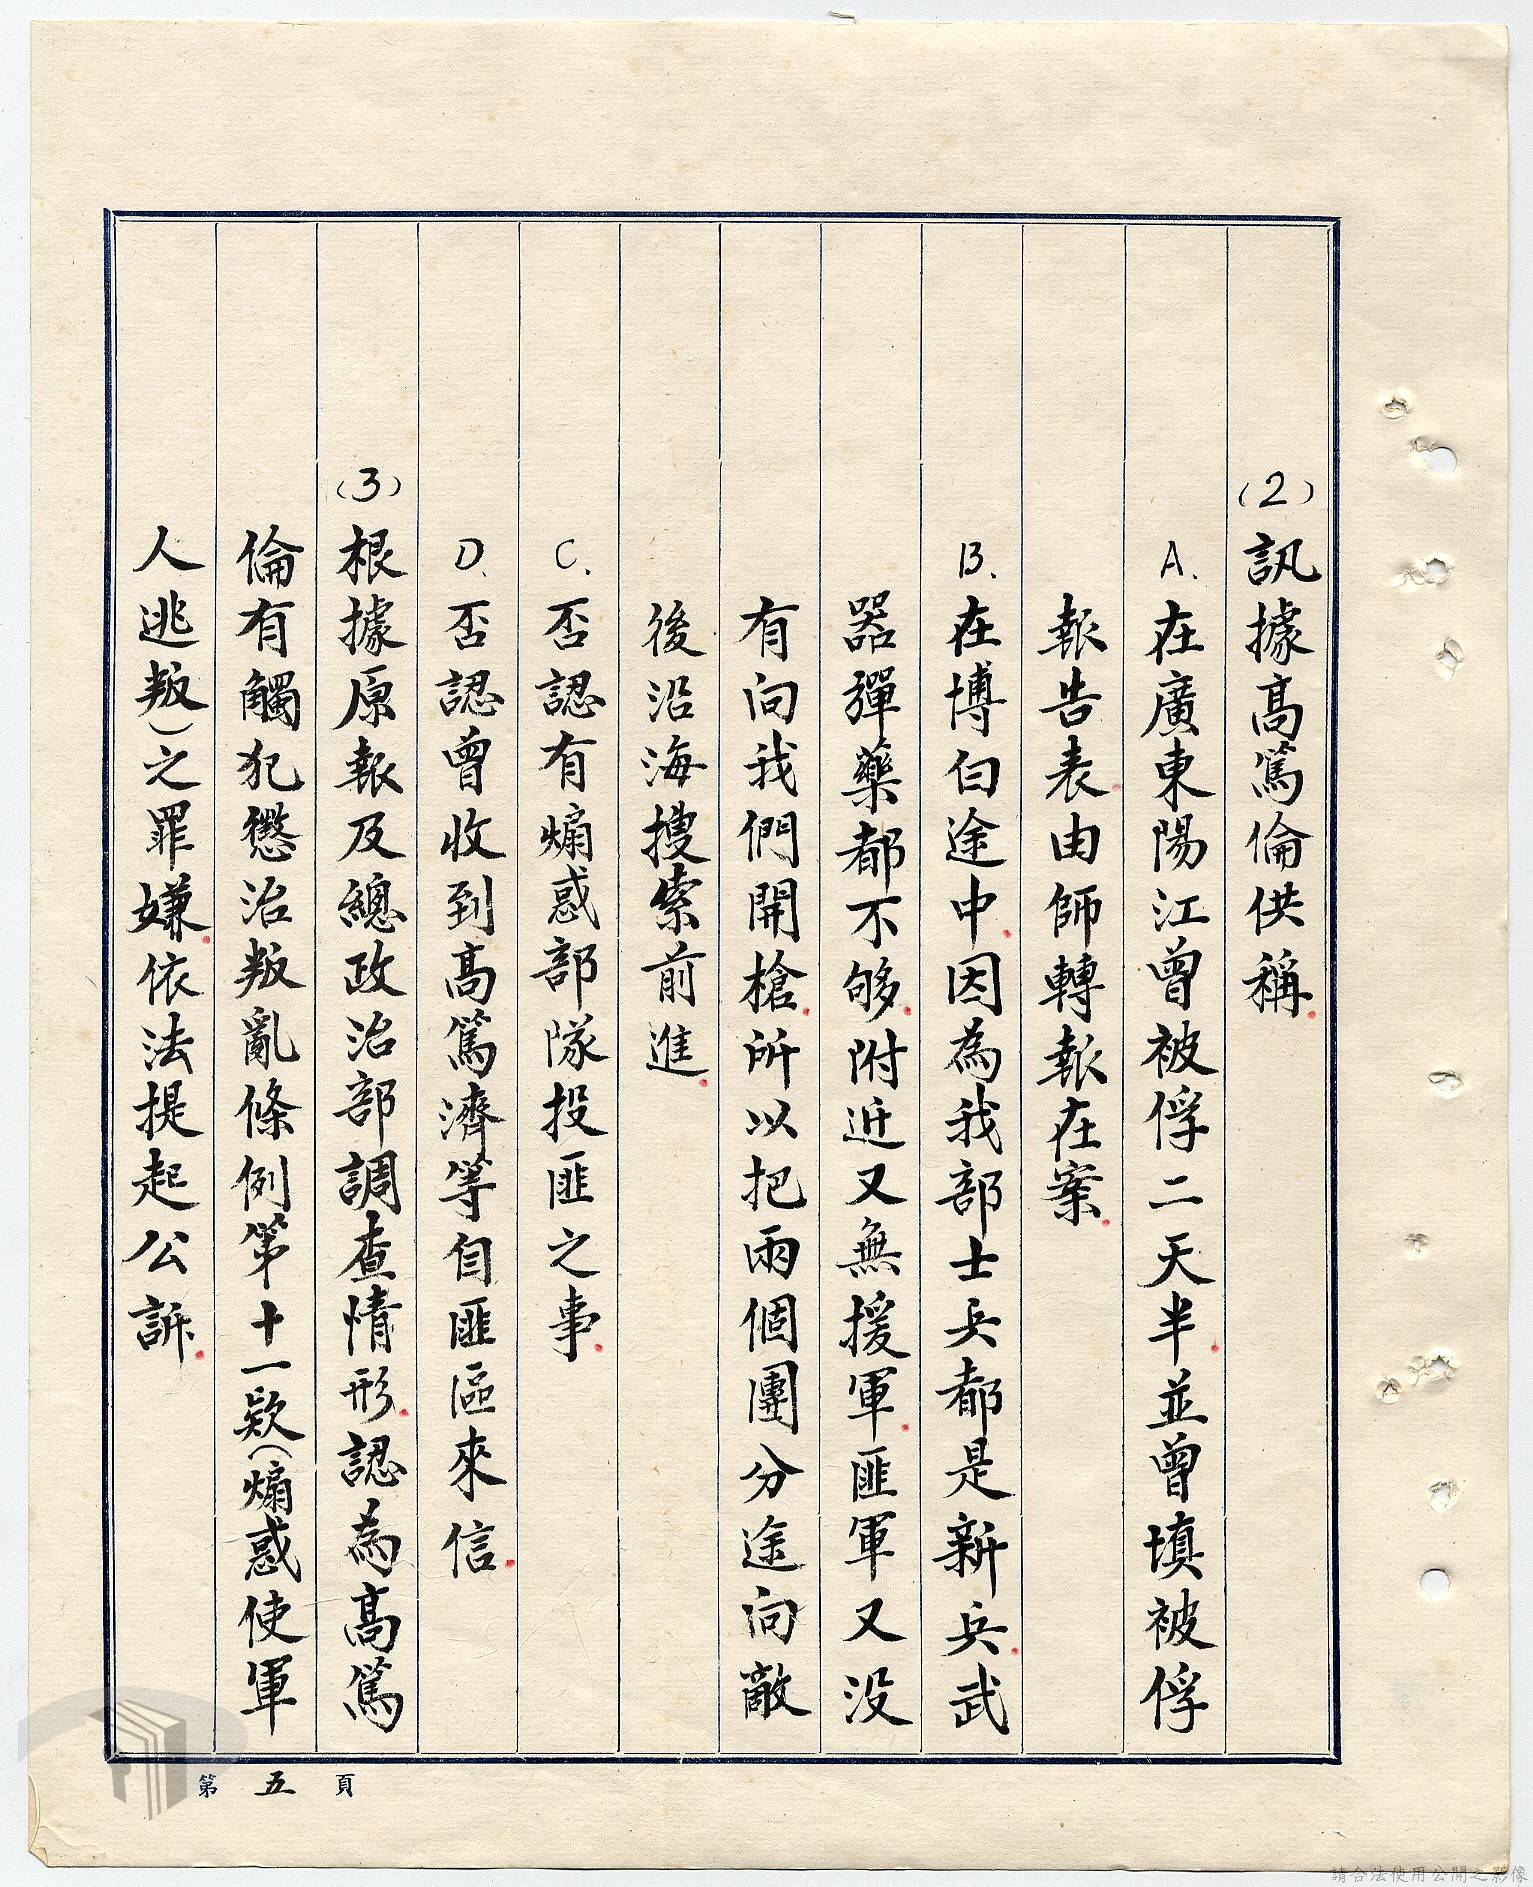 (2)訊據高篤倫供稱
A.在廣東陽江曾被俘二天半並曾填被俘
報告表由師轉報在案
B.在博白途中因為我部士兵都是新兵武
器彈藥都不够附近又無援軍匪軍又没
有向我們開槍所以把兩個團分途向敵
後沿海搜索前進
C.否認有煽惑部隊投匪之事
D.否認曾收到高篤濟等自匪區來信
(3)根據原報及總政治部調查情形認為高篤
倫有觸犯懲治叛亂條例第十一欵(煽惑使軍
人逃叛)之罪嫌依法提起公訴
第五頁
請合法使用公開之影像